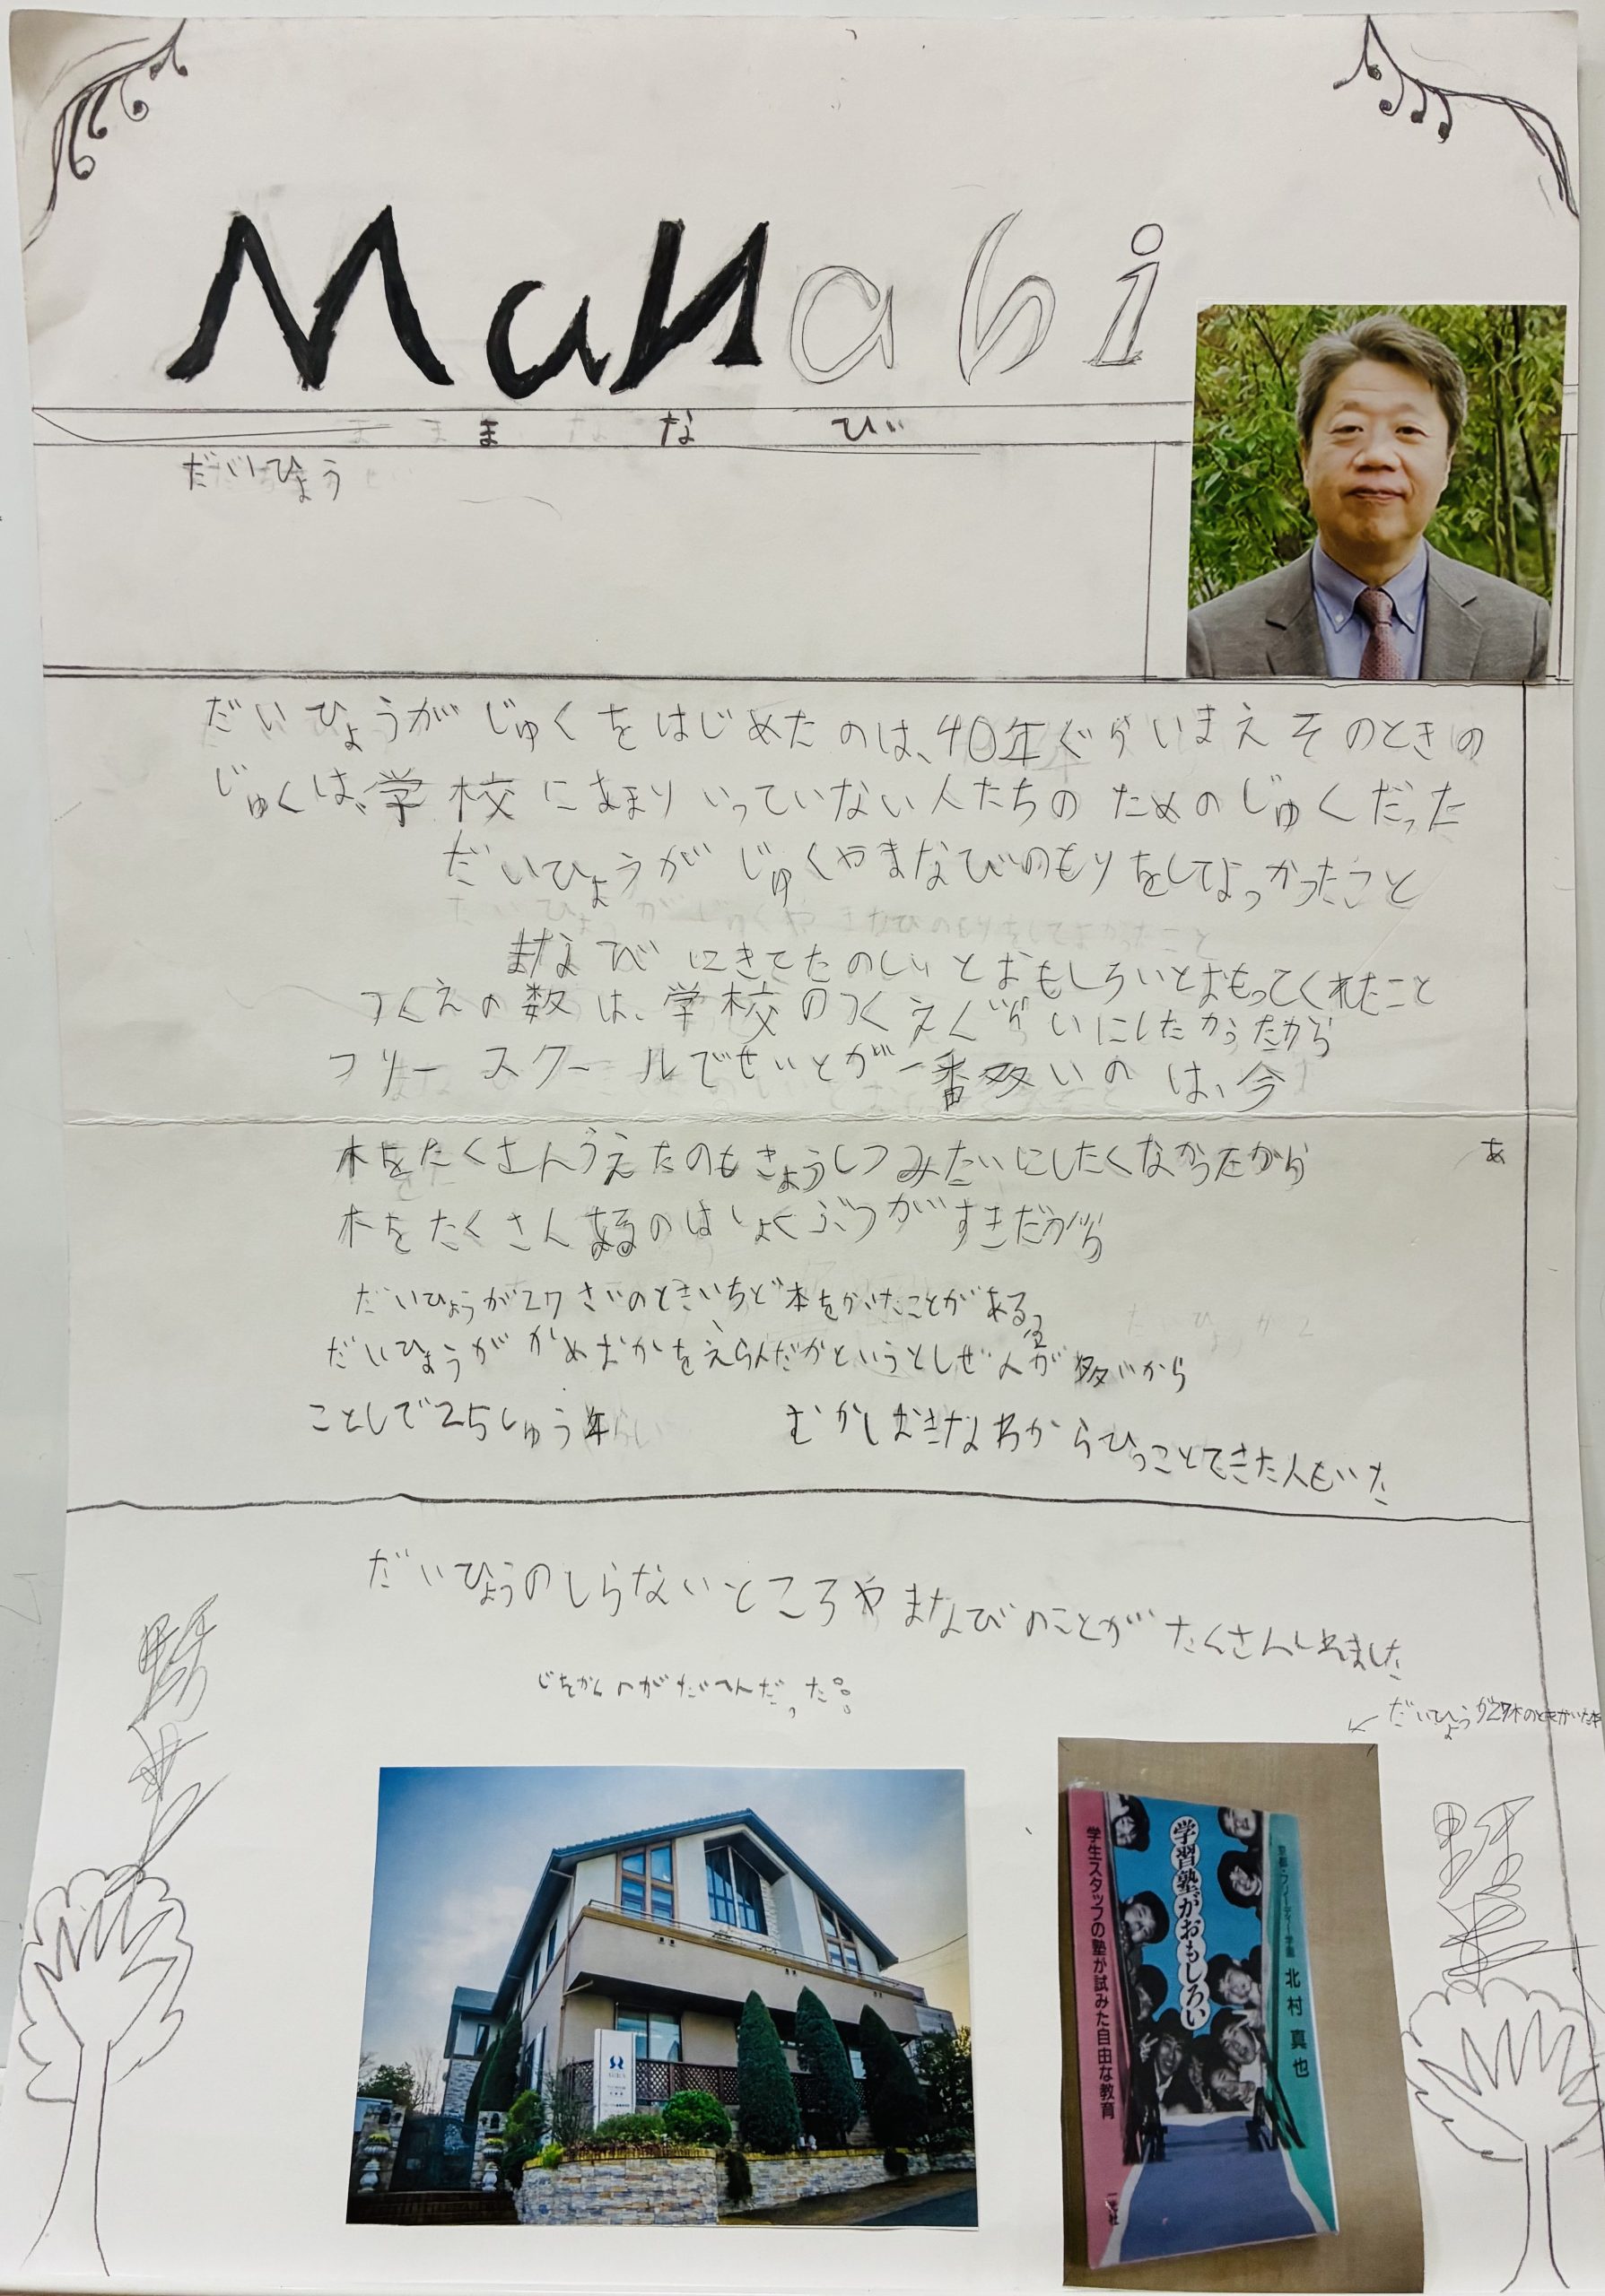 Manabi
まなび
だいひょう
だいひょうがじゅくをはじめたのは、40年ぐらいまえそのときの
じゅくは、学校にあまりいっていない人たちのためのじゅくだった
だいひょうがじゅくやまなびのもりをしてよかったこと
まなびにきてたのしいとおもしろいとおもってくれたこと
つくえの数は、学校のつくえくぐらいにしたかったから
フリースクールでせいとが一番多いのは、今
木をたくさんうえたのもきょうしつみたいにしたくなかったから
あ
木をたくさんあるのはしょくぶつがすきだから
だいひょうが27さいのときいちど本をかいたことがある
だいひょうがかめおかをえらんだかというとしぜんが多いから
ことしで25しゅう年
むかしおきなわからひっこしてきた人もいた
だいひょうのしらないところやまなびのことがたくさんしれました
じをかくのがたいへんだった。
だいひょうが27才のときかいた本
学習塾がおもしろい
学生スタッフの塾が試みた自由な教育
北村真也